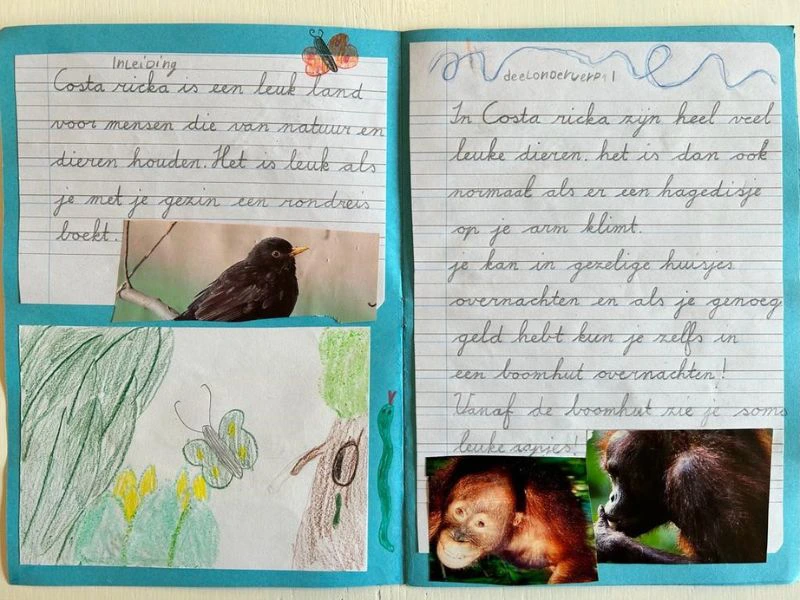 Inleiding
Costa ricka is een leuk land
voor mensen die van natuur en
dieren houden. Het is leuk als
je met je gezin een rondreis
boekt.
deelonderwerp 1
In Costa ricka zijn heel veel
leuke dieren. het is dan ook
normaal als er een hagedisje
op je arm klimt.
je kan in gezelige huisjes
overnachten en als je genoeg
geld hebt kun je zelfs in
een boomhut overnachten!
Vanaf de boomhut zie je soms
leuke aapjes!